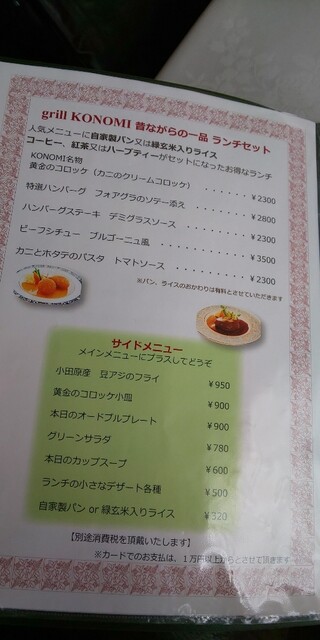 grill KONOMI 昔ながらの一品 ランチセット
人気メニューに自家製パン又は緑玄米入りライス
コーヒー、紅茶又はハーブティーがセットになったお得なランチ
KONOMI名物
黄金のコロッケ（カニのクリームコロッケ）・・・・・・・¥2300
特選ハンバーグ フォアグラのソテー添え ・・・・・・・¥2800
ハンバーグステーキ デミグラスソース ・・・・・・・¥2300
ビーフシチュー ブルゴーニュ風 ・・・・・・・・・・¥3500
カニとホタテのパスタ トマトソース ・・・・・・・・¥2300
※パン、ライスのおかわりは有料とさせていただきます
サイドメニュー
メインメニューにプラスしてどうぞ
小田原産 豆アジのフライ ¥950
黄金のコロッケ小皿 ¥900
本日のオードブルプレート ¥900
グリーンサラダ ¥780
本日のカップスープ ¥600
ランチの小さなデザート各種 ¥500
自家製パン or 緑玄米入りライス ¥320
【別途消費税を頂戴いたします】
※カードでのお支払は、1万円以上からとさせて頂きます